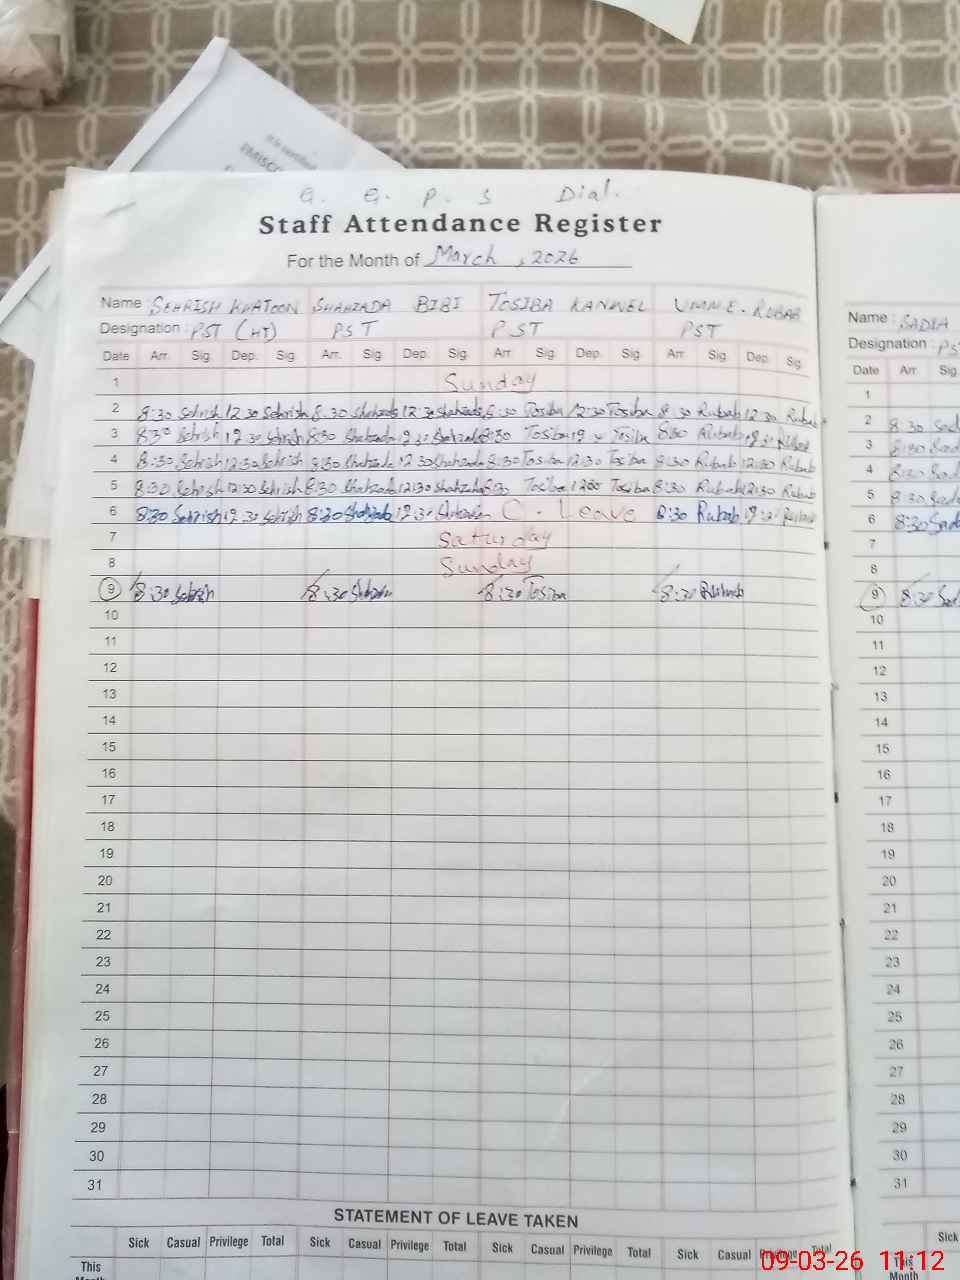 G. G. P. S Dial.
Staff Attendance Register
For the Month of March, 2026
Name : SEHRISH KHATOON SHAHZADA BIBI TOSIBA KANWEL UMME. RUBAB
Designation : PST (HT) PST PST PST
Date Arr. Sig. Dep. Sig. Arr. Sig. Dep. Sig. Arr. Sig. Dep. Sig. Arr. Sig. Dep. Sig.
1 Sunday
2 8:30 Sehrish 12:30 Sehrish 8:30 Shahzada 12:30 Shahzada 8:30 Tosiba 12:30 Tosiba 8:30 Rubab 12:30 Rubab
3 8:30 Sehrish 12:30 Sehrish 8:30 Shahzada 12:30 Shahzada 8:30 Tosiba Tosiba 8:30 Rubab 12:30 Rubab
4 8:30 Sehrish 12:30 Sehrish 8:30 Shahzada 12:30 Shahzada 8:30 Tosiba 12:30 Tosiba 8:30 Rubab 12:30 Rubab
5 8:30 Sehrish 12:30 Sehrish 8:30 Shahzada 12:30 Shahzada 8:30 Tosiba Tosiba 8:30 Rubab 12:30 Rubab
6 8:30 Sehrish 12:30 Sehrish 8:30 Shahzada 12:30 C. Leave 8:30 Rubab 12:30 Rubab
7 Saturday
8 Sunday
9 8:30 Sehrish 8:30 8:30 Tosiba 8:30 Rubab
10
11
12
13
14
15
16
17
18
19
20
21
22
23
24
25
26
27
28
29
30
31
STATEMENT OF LEAVE TAKEN
Sick Casual Privilege Total Sick Casual Privilege Total Sick Casual Privilege Total Sick Casual Privilege Total
This
Month
Name : SADIA
Designation : PS
Date Arr. Sig.
1
2 8:30 Sad
3 8:30 Sad
4 8:30 Sad
5 8:30 Sad
6 8:30 Sad
7
8
9 8:30 Sad
10
11
12
13
14
15
16
17
18
19
20
21
22
23
24
25
26
27
28
29
30
31
Sick
This
Month
09-03-26 11:12